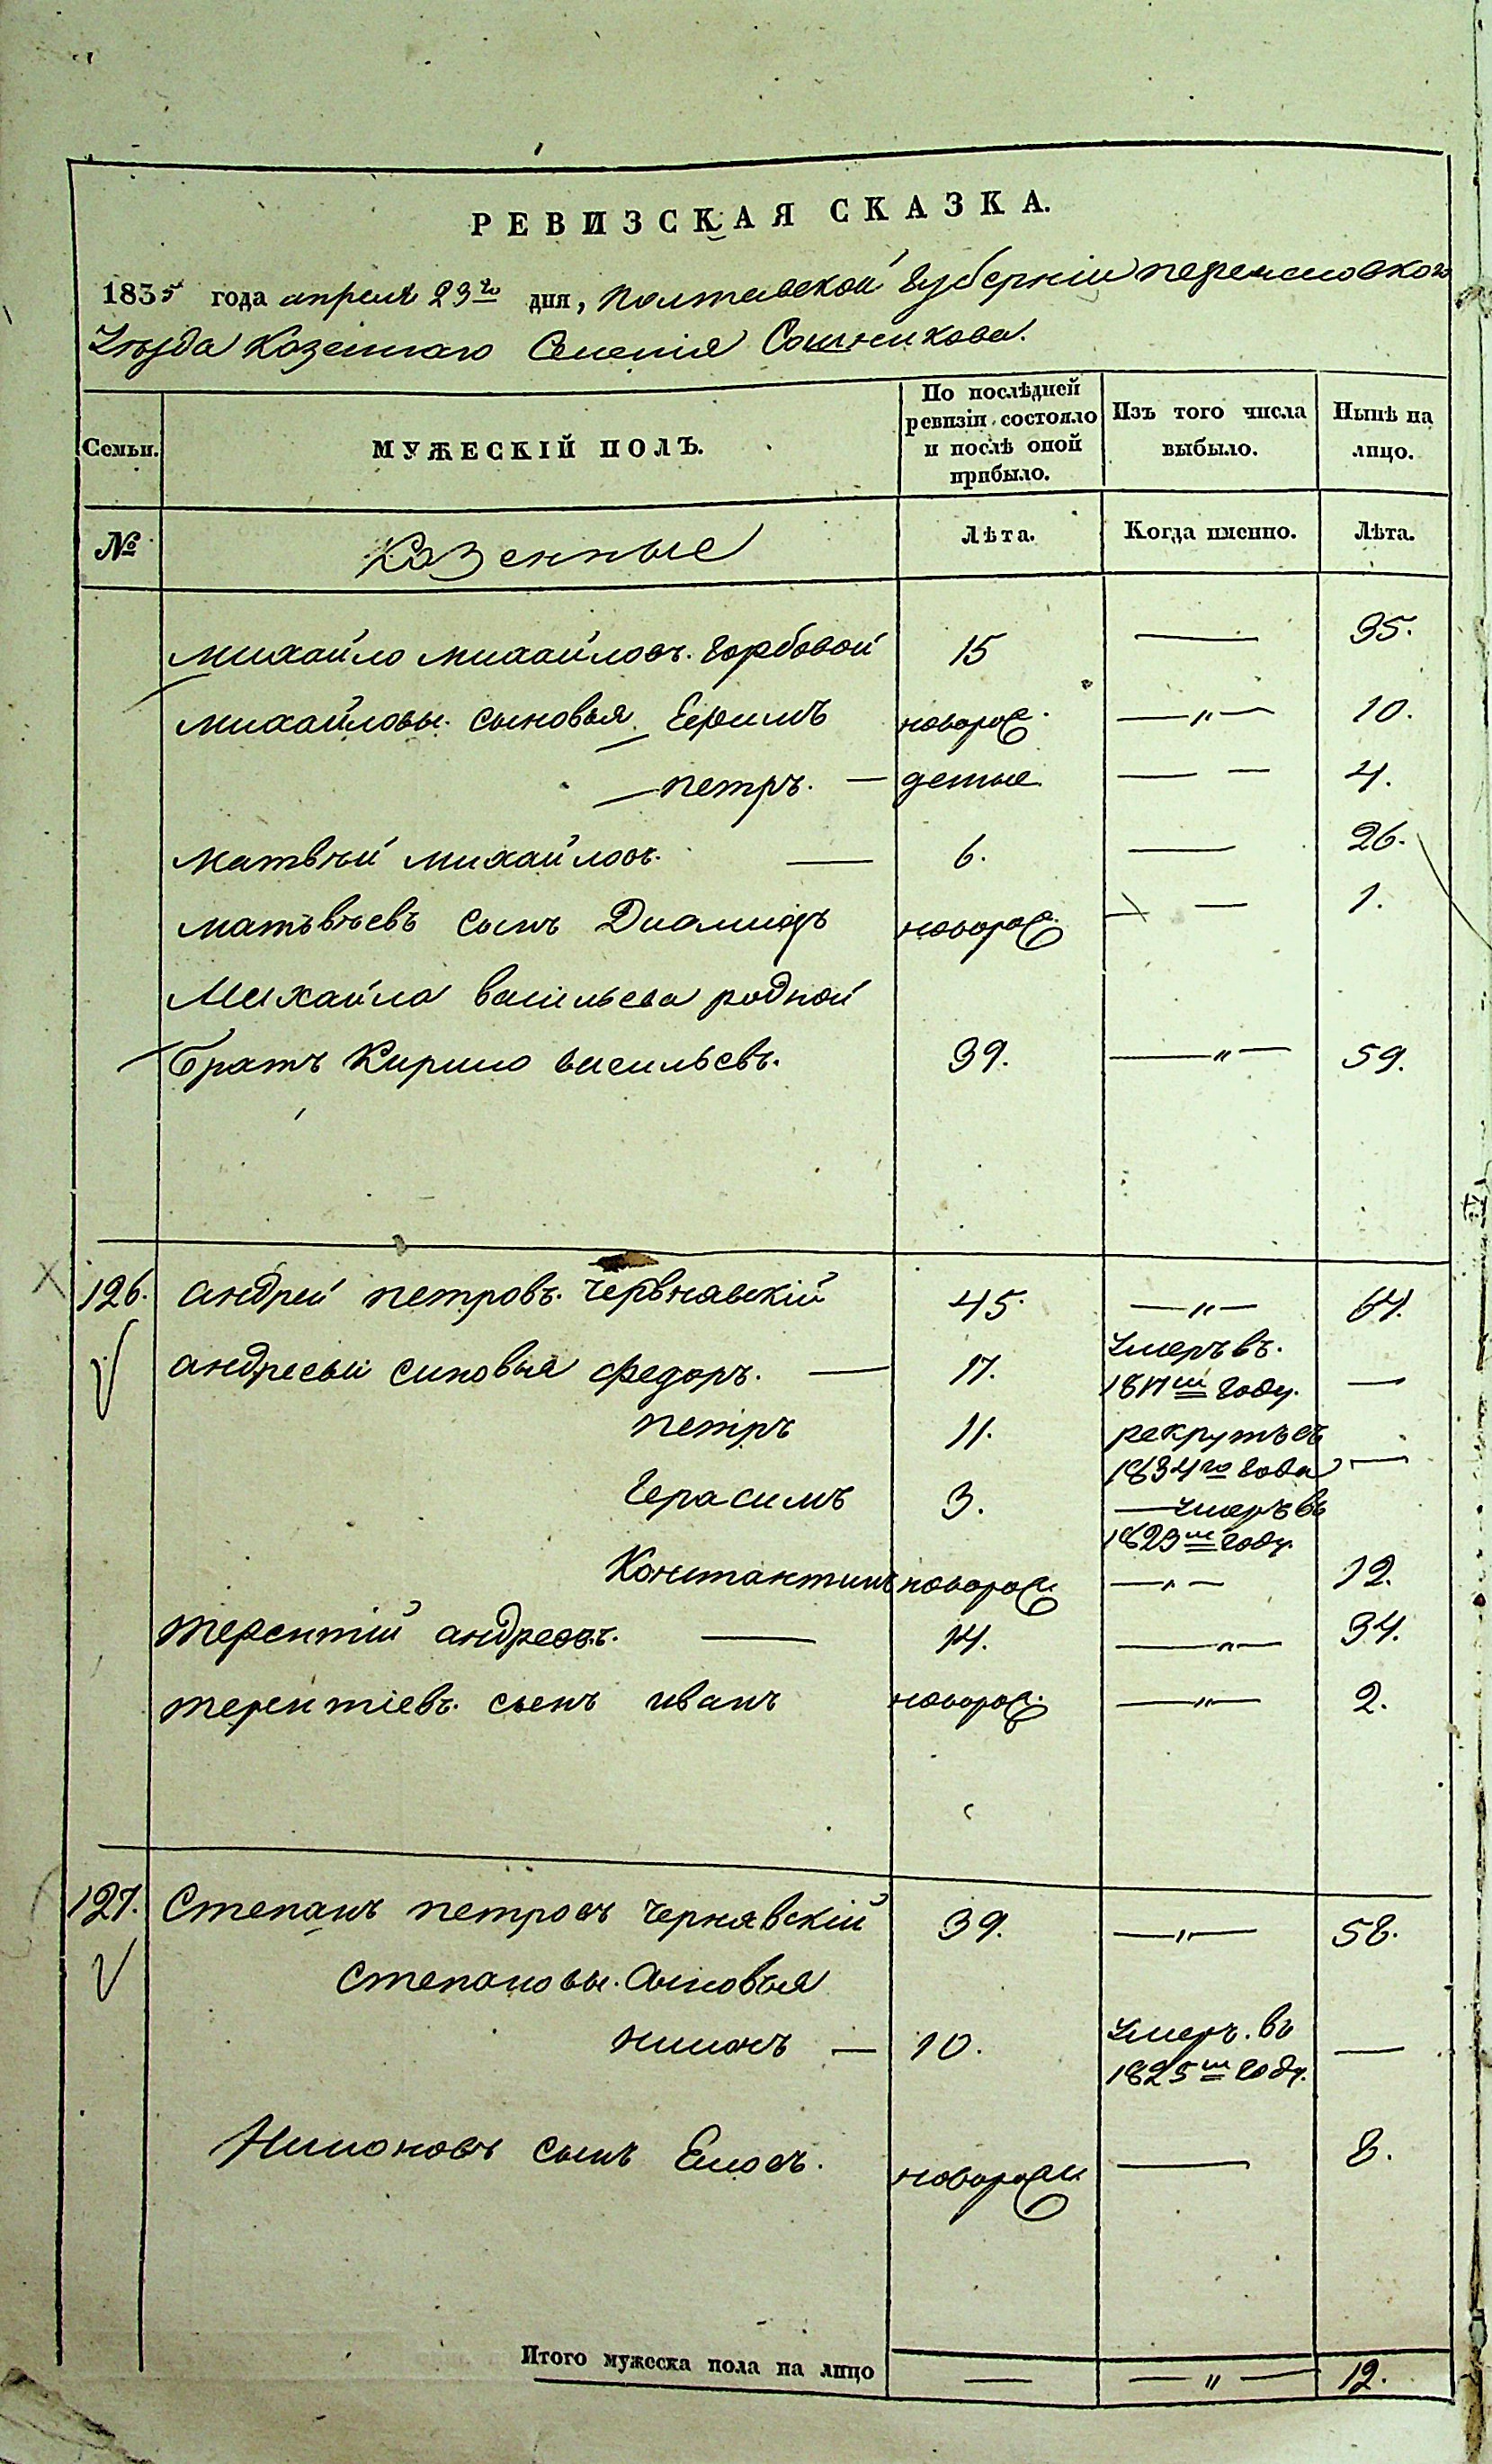 РЕВИЗСКАЯ СКАЗКА.
1835 года апреля 23го дня, Полтавской Губерніи Переясловского
Уезда Казеннаго Селенія Сошникова.
Семьи. МУЖЕСКІЙ ПОЛЪ. По послѣдней ревизіи состояло и послѣ оной прибыло. Изъ того числа выбыло. Нынѣ на лицо.
№ Казенные Лѣта. Когда именно. Лѣта.
Михайло Михайловъ. Горбовой 15 — 35.
Михайловы. сыновья Ефимъ новорож. —„— 10.
Петръ. — детые — — 4.
Матвѣй Михайловъ. — 6. — 26.
Матьвѣевъ сынъ Диомидъ новорож. — — 1.
Михайла Васильева родной
братъ Кирило Васильевъ. 39. —„— 59.
126. Андрей Петровъ. Чернявскій 45. —„— 64.
Андреевы синовья Федоръ. — 17. Умеръ въ. 1817м году. —
Петръ 11. рекрутъ съ 1834го года —
Герасимъ 3. — умеръ въ 1823м году.
Константинъ новорож. —„— 12.
Терентій Андреевъ. — 14. —„— 34.
Терентіевъ. сынъ Иванъ новорож. —„— 2.
127. Степанъ Петровъ Чернявскій 39. —„— 58.
Степановы. Сыновья
Нимонъ — 10. Умеръ. въ 1825м году. —
Нимоновъ сынъ новорож — 8.
Итого мужеска пола на лицо — —„— 12.